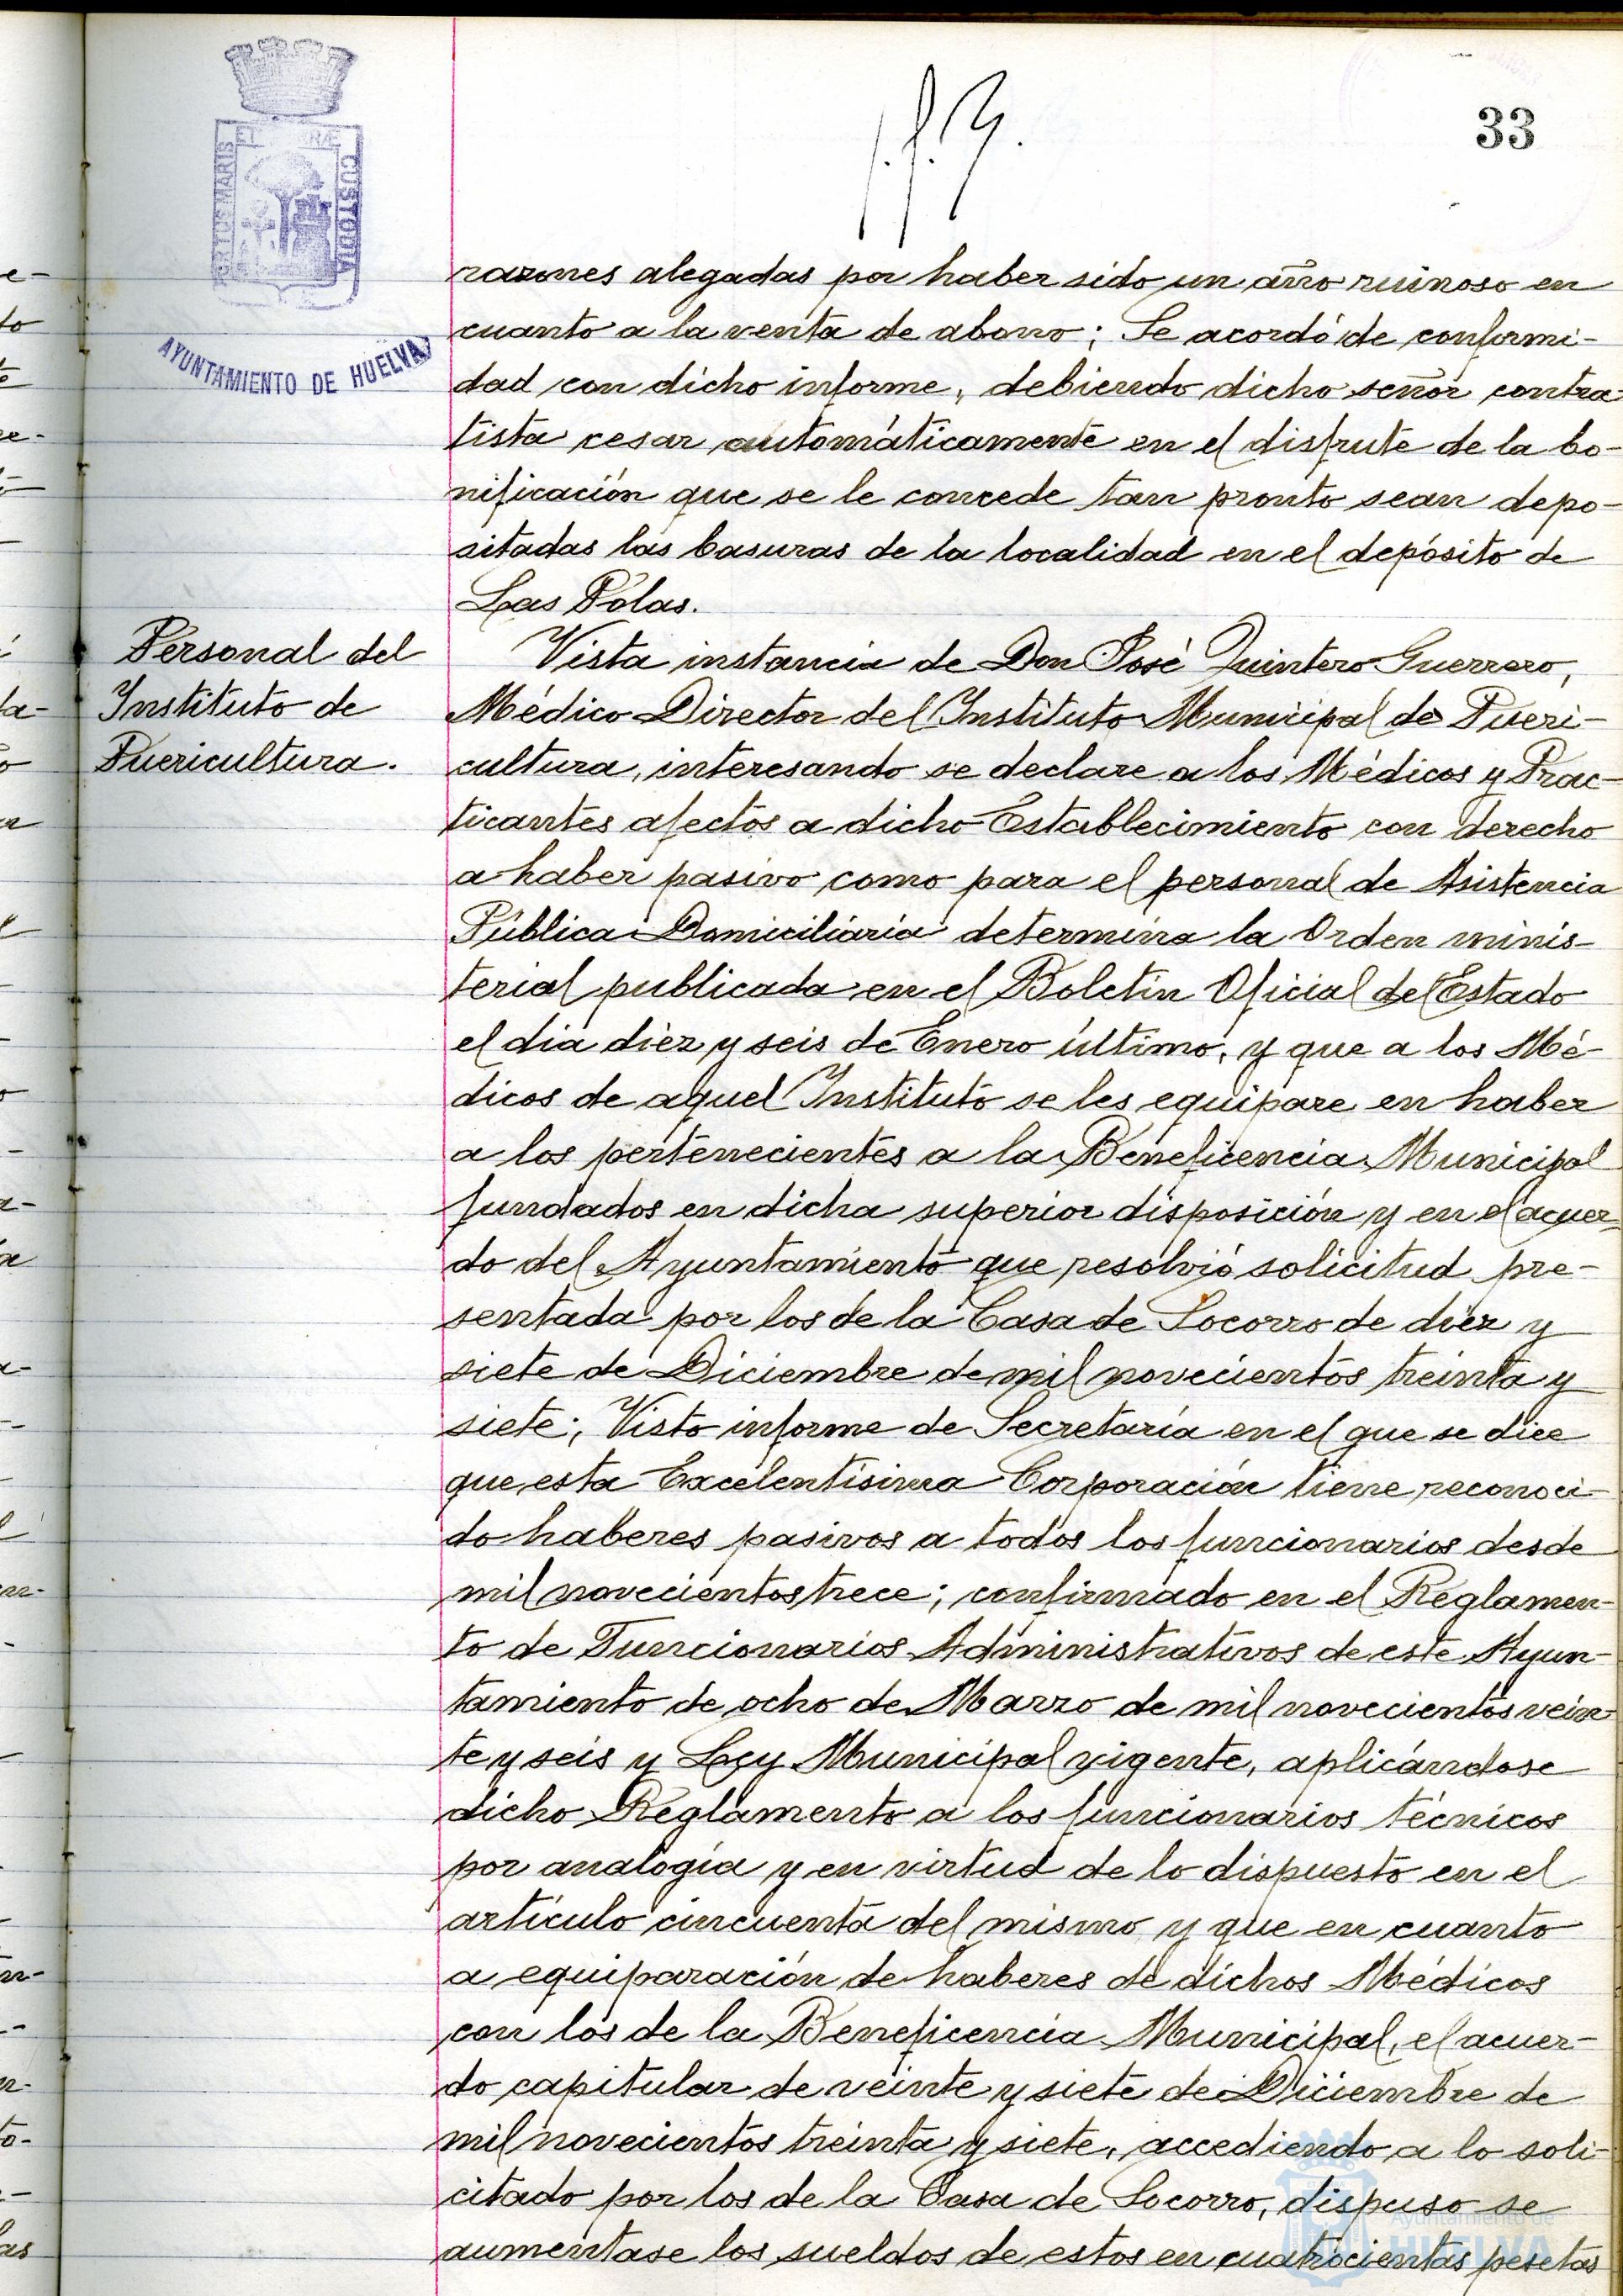 33
PORTUS MARIS ET TERRÆ CUSTODIA
AYUNTAMIENTO DE HUELVA
razones alegadas por haber sido un año ruinoso en
cuanto a la venta de abono; Se acordó de conformi-
dad con dicho informe, debiendo dicho señor contra-
tista cesar automáticamente en el disfrute de la bo-
nificación que se le concede tan pronto sean depo-
sitadas las basuras de la localidad en el depósito de
Las Polas.
Personal del
Instituto de
Puericultura.
Vista instancia de Don José Quintero Guerrero,
Médico Director del Instituto Municipal de Pueri-
cultura, interesando se declare a los Médicos y Prac-
ticantes afectos a dicho Establecimiento con derecho
a haber pasivo como para el personal de Asistencia
Pública Domiciliária determina la Orden minis-
terial publicada en el Boletín Oficial del Estado
el día diez y seis de Enero último, y que a los Mé-
dicos de aquel Instituto se les equipare en haber
a los pertenecientes a la Beneficencia Municipal
fundados en dicha superior disposición y en el acuer-
do del Ayuntamiento que resolvió solicitud pre-
sentada por los de la Casa de Socorro de diez y
siete de Diciembre de mil novecientos treinta y
siete; Visto informe de Secretaría en el que se dice
que esta Excelentísima Corporación tiene reconoci-
do haberes pasivos a todos los funcionarios desde
mil novecientos trece; confirmado en el Reglamen-
to de Funcionarios Administrativos de este Ayun-
tamiento de ocho de Marzo de mil novecientos vein-
te y seis y Ley Municipal vigente, aplicándose
dicho Reglamento a los funcionarios técnicos
por analogía y en virtud de lo dispuesto en el
artículo cincuenta del mismo y que en cuanto
a equiparación de haberes de dichos Médicos
con los de la Beneficencia Municipal, el acuer-
do capitular de veinte y siete de Diciembre de
mil novecientos treinta y siete, accediendo a lo soli-
citado por los de la Casa de Socorro, dispuso se
aumentase los sueldos de estos en cuatrocientas pesetas
Ayuntamiento de
HUELVA